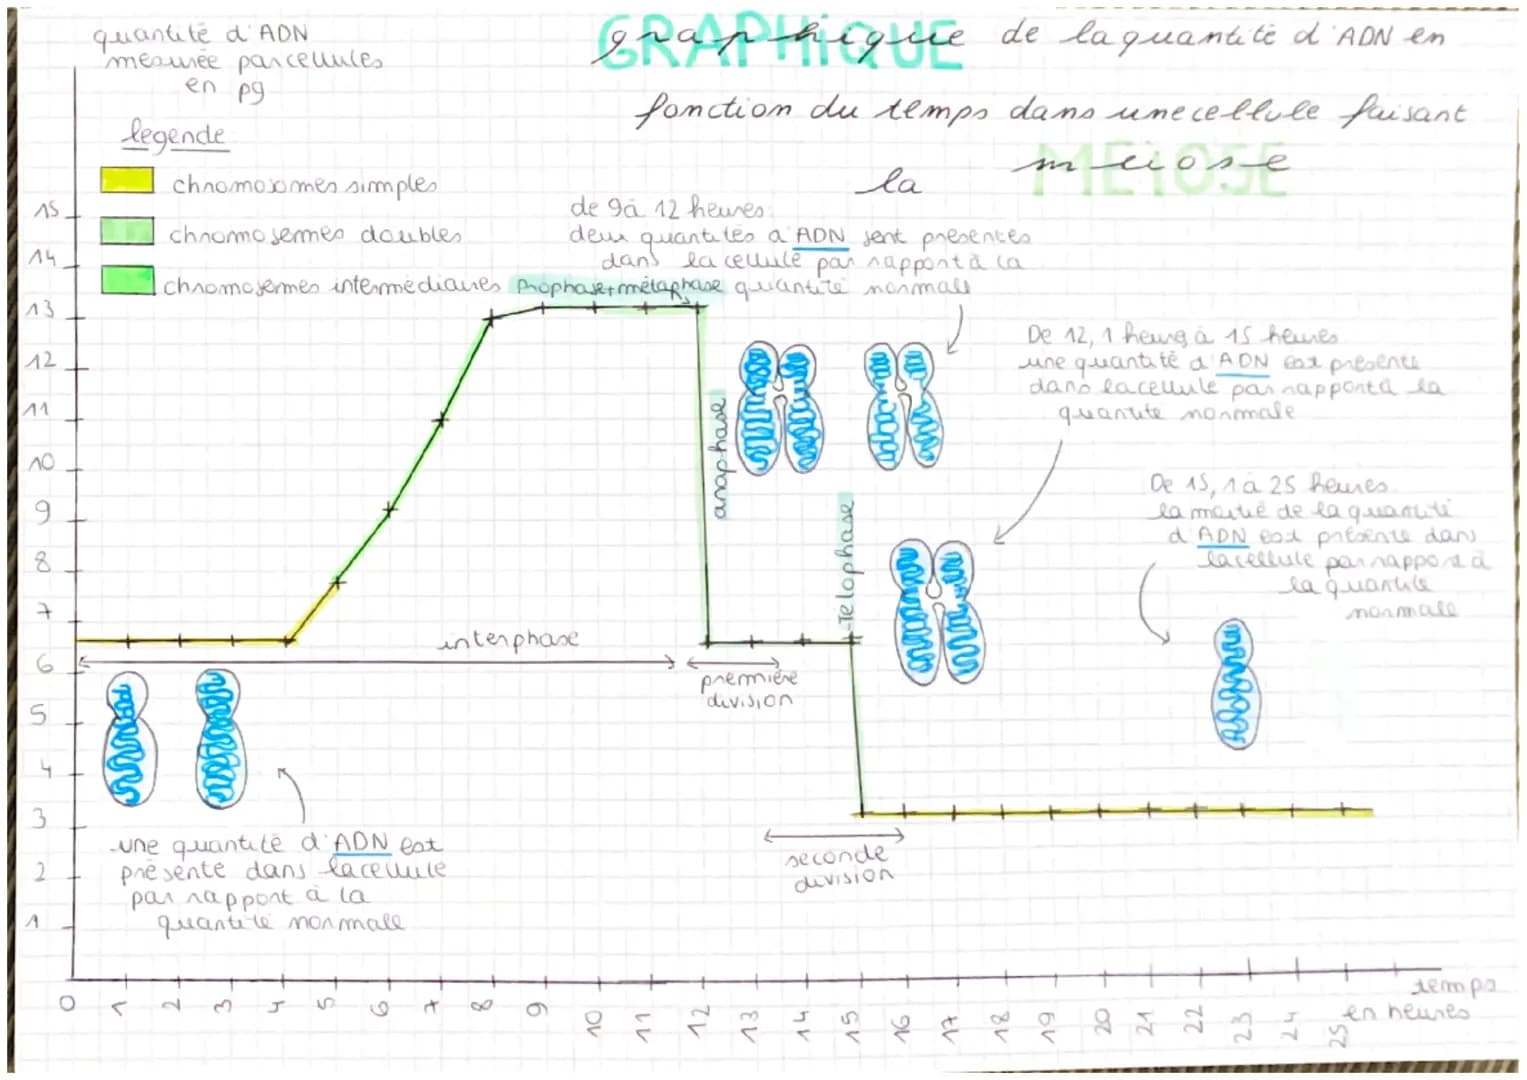 quantité d'ADN
mesurée par cellules
en pg
graphique de la quantité d'ADN en
GRAPHIQUE
fonction du temps dans une cellule faisant
la meiose
MEIOSE
legende
chromosomes simples
chromosomes doubles
chromosomes intermediaires
de 9 à 12 heures:
deux quantités d'ADN sont présentes
dans la cellule par rapport à la
quantité normale
Prophase+métaphase
De 12, 1 heures à 15 heures
une quantité d'ADN est présente
dans la cellule par rapport à la
quantité normale
anaphase
Télophase
De 15, 1 à 25 heures
la moitié de la quantité
d'ADN est présente dans
la cellule par rapport à
la quantité
normale
interphase
première
division
seconde
division
une quantité d'ADN est
présente dans la cellule
par rapport à la
quantité normale
15
14
13
12
11
10
9
8
7
6
5
4
3
2
1
0 1 2 3 4 5 6 7 8 9 10 11 12 13 14 15 16 17 18 19 20 21 22 23 24 25
temps
en heures